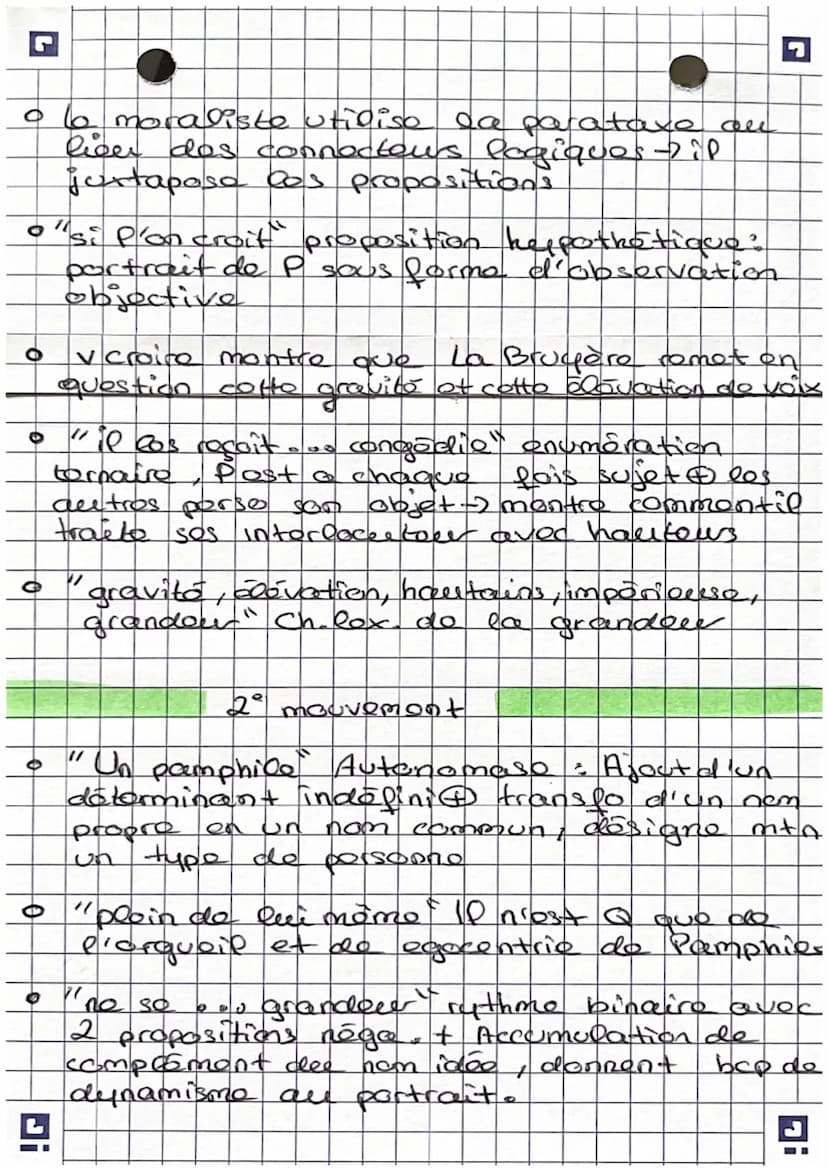 o le moraliste utilise la parataxe au
lieu des connecteurs logiques → il
juxtapose les propositions
o "si l'on croit" proposition hyppothétique:
portrait de P sous forme d'observation
objective
o v croire montre que La Bruyère remet en
question cette gravité et cette élévation de voix
o "il les reçoit... congédie" enumération
ternaire, P est a chaque fois sujet ⊕ les
autres perso son objet → montre comment il
traite ses interlocuteur avec hauteurs
o "gravité, élévation, hautains, impérieuse,
grandeur" Ch. lex. de la grandeur
2e mouvement
o "Un pamphile" Autonomase : Ajout d'un
déterminant indéfini ⊕ transfo d'un nom
propre en un nom commun, désigne mtn
un type de personne
o "plein de lui même" Il n'est Q que de
l'orgueil et de egocentrie de Pamphies
o "ne se ... grandeur" rythme binaire avec
2 propositions néga. + Accumulation de
complément du nom idée, donnent bcp de
dynamisme au portrait.